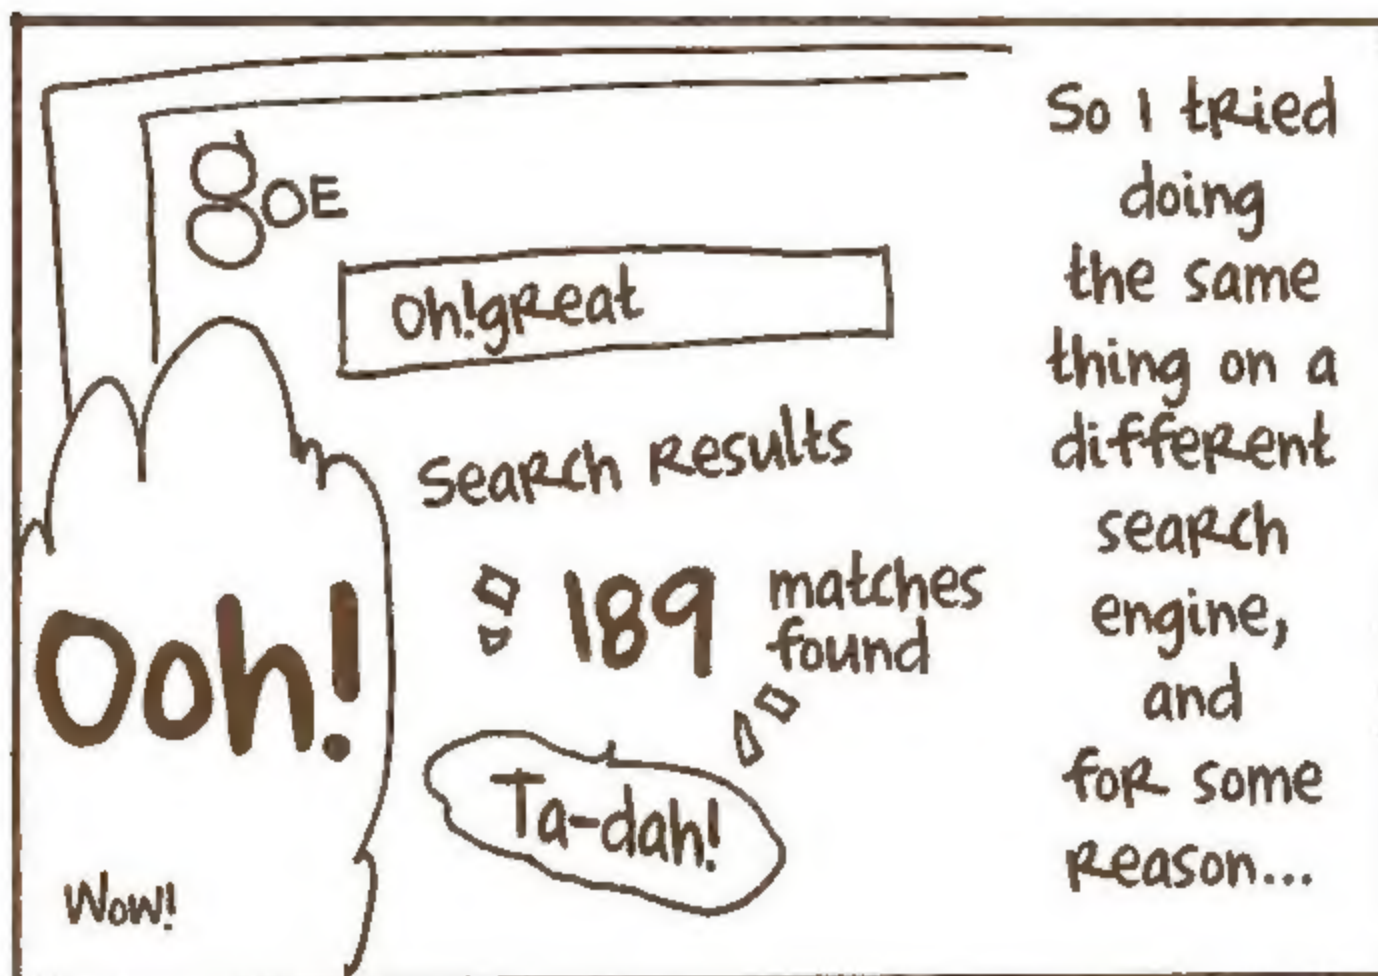 goE
oh!great
Search Results
189
matches
found
Ta-dah!
Ooh!
Wow!
So I tried
doing
the same
thing on a
different
search
engine,
and
for some
reason...